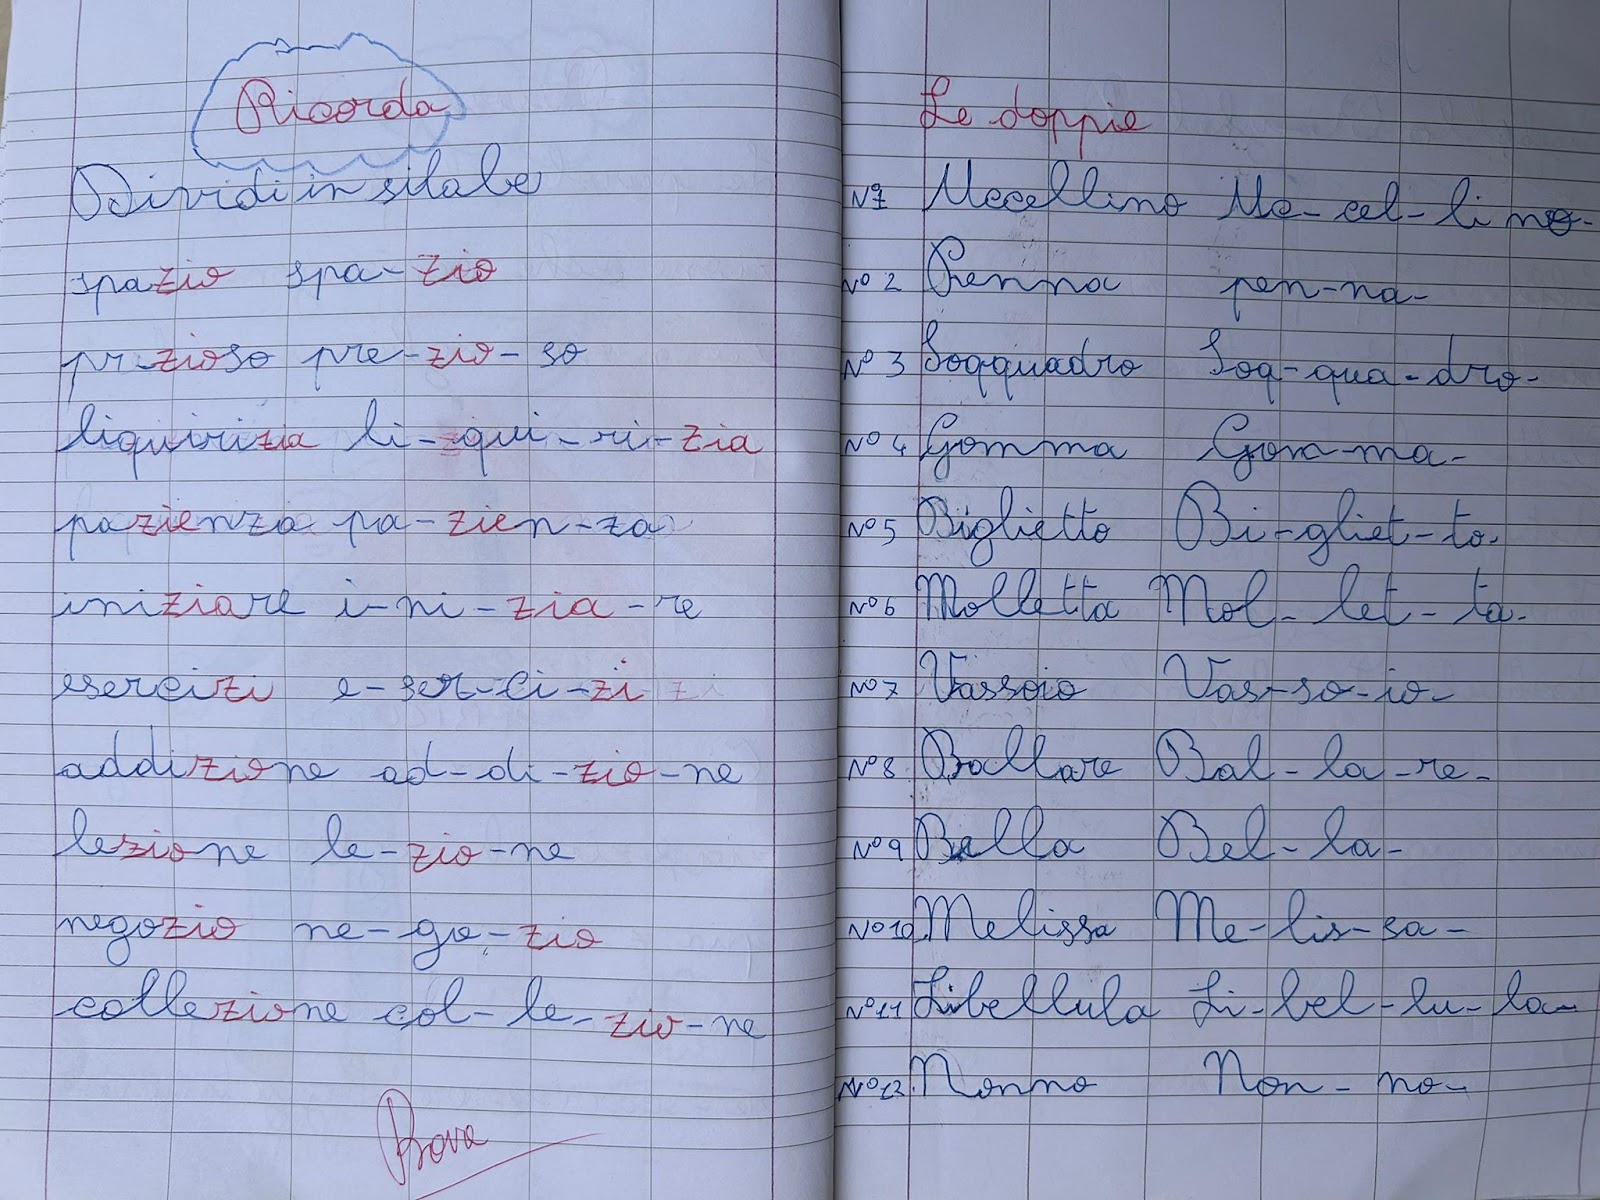 Ricorda
Dividi in silabe
spazio spa-zio
prezioso pre-zio-so
liquirizia li-qui-ri-zia
pazienza pa-zien-za
iniziare i-ni-zia-re
esercizi e-ser-ci-zi
addizione ad-di-zio-ne
lezione le-zio-ne
negozio ne-go-zio
collezione col-le-zio-ne
Le doppie
N°1 Uccellino Uc-cel-li no-
N° 2 Penna pen-na-
N° 3 Soqquadro Soq-qua-dro-
N° 4 Gomma Gom-ma-
N°5 Biglietto Bi-gliet-to-
N°6 Molletta Mol-let-ta-
N°7 Vassoio Vas-so-io-
N°8 Ballare Bal-la-re-
N°9 Bella Bel-la-
N°10 Melissa Me-lis-sa-
N°11 Libellula Li-bel-lu-la-
N°12 Nonno Non-no-